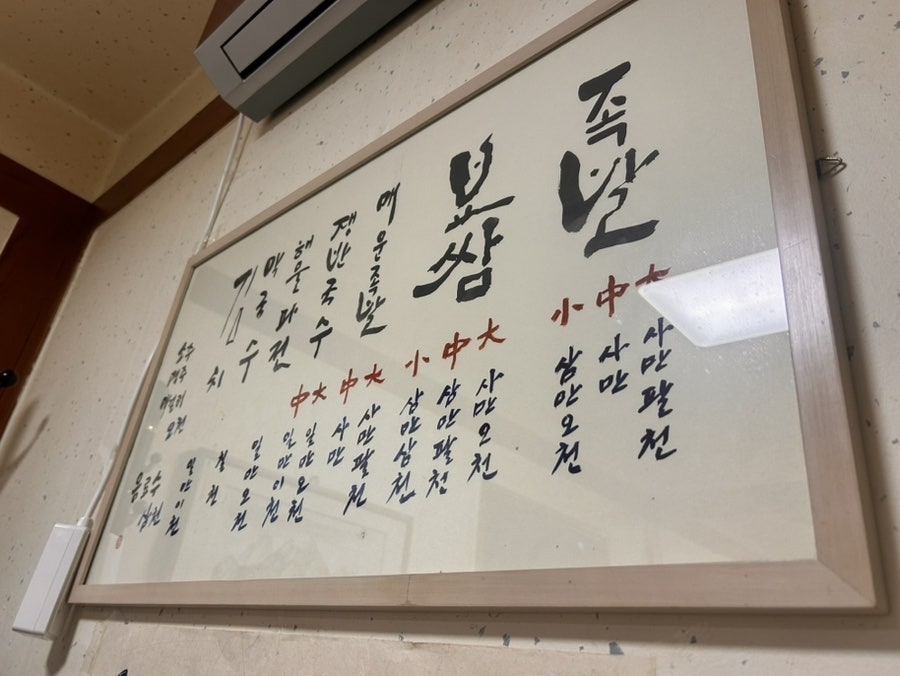 족발
大 사만팔천
中 사만
小 삼만오천
보쌈
大 사만오천
中 삼만팔천
小 삼만삼천
매운족발
大 사만팔천
中 사만
쟁반국수
大 일만오천
中 일만이천
해물파전
일만오천
막국수
칠천
김치
일만이천
소주
맥주
막걸리
오천
음료수
삼천